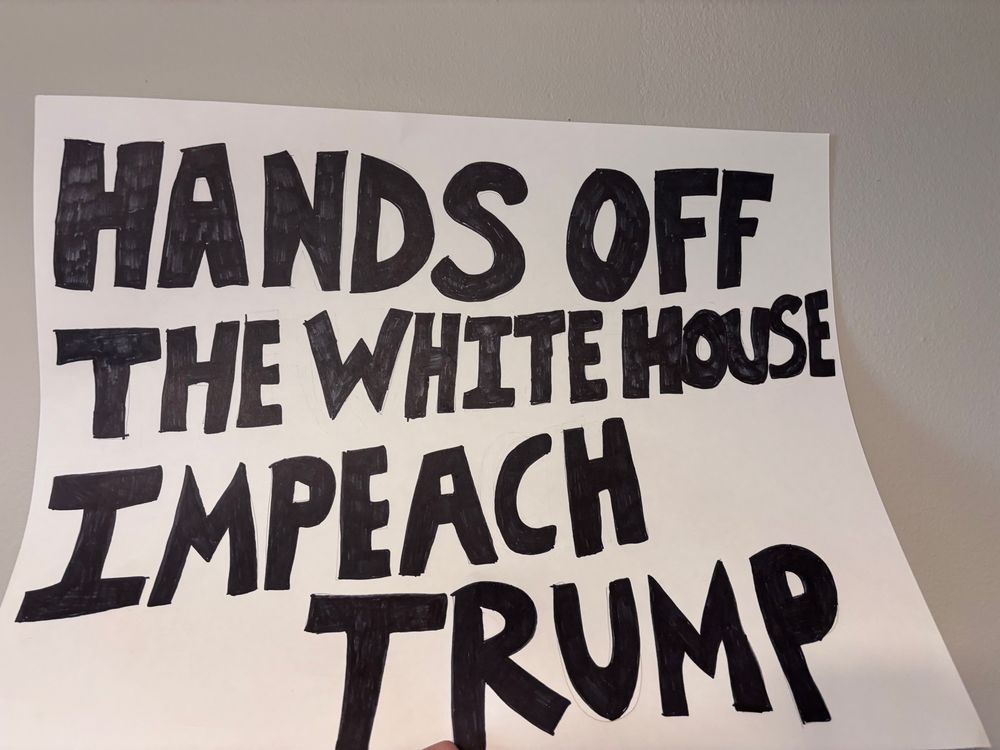 HANDS OFF
THE WHITE HOUSE
IMPEACH
TRUMP